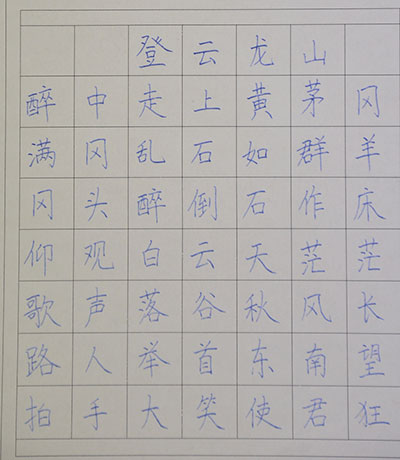 登云龙山
醉中走上黄茅冈
满冈乱石如群羊
冈头醉倒石作床
仰观白云天茫茫
歌声落谷秋风长
路人举首东南望
拍手大笑使君狂